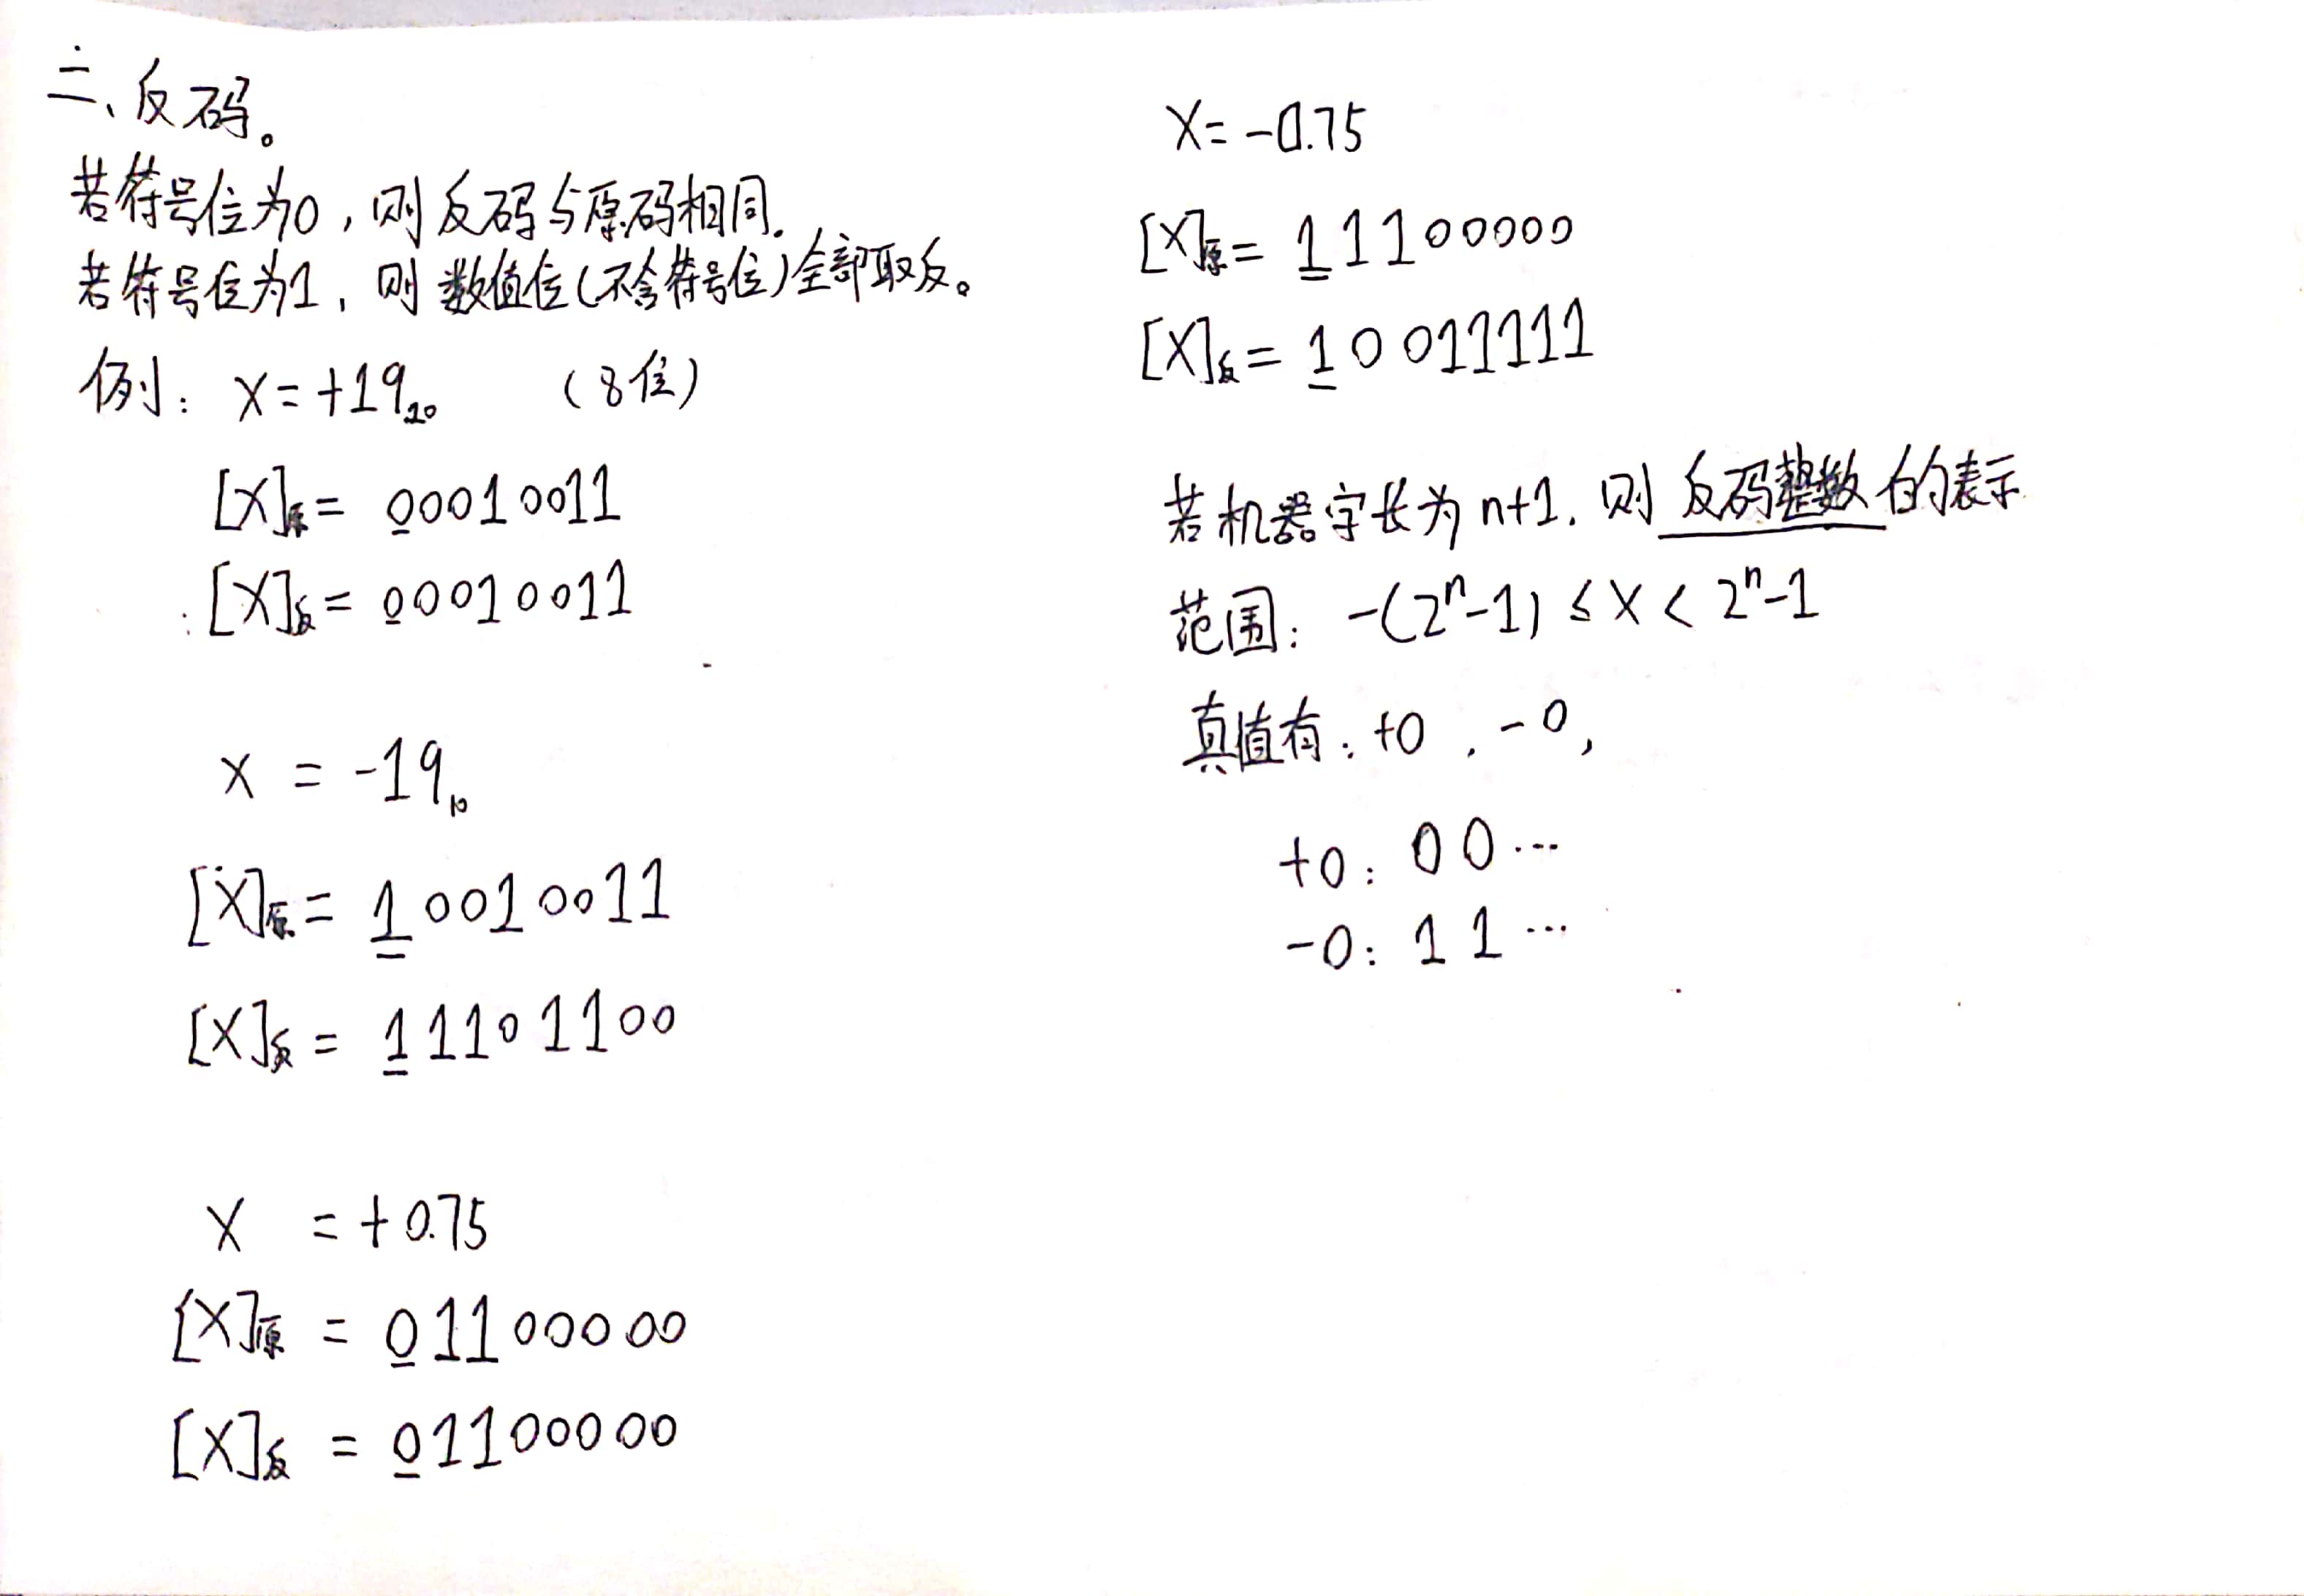 二、反码。
若符号位为0，则反码与原码相同.
若符号位为1，则数值位(不含符号位)全部取反。
例：X=+19₁₀ （8位）
[X]原= 00010011
[X]反= 00010011
X = -19₁₀
[X]原= 10010011
[X]反= 11101100
X = +0.75
[X]原 = 01100000
[X]反 = 01100000
X= -0.75
[X]原= 11100000
[X]反= 10011111
若机器字长为n+1，则反码整数的表示
范围：-(2ⁿ-1) ≤ X < 2ⁿ-1
真值有：+0，-0，
+0：00…
-0：11…